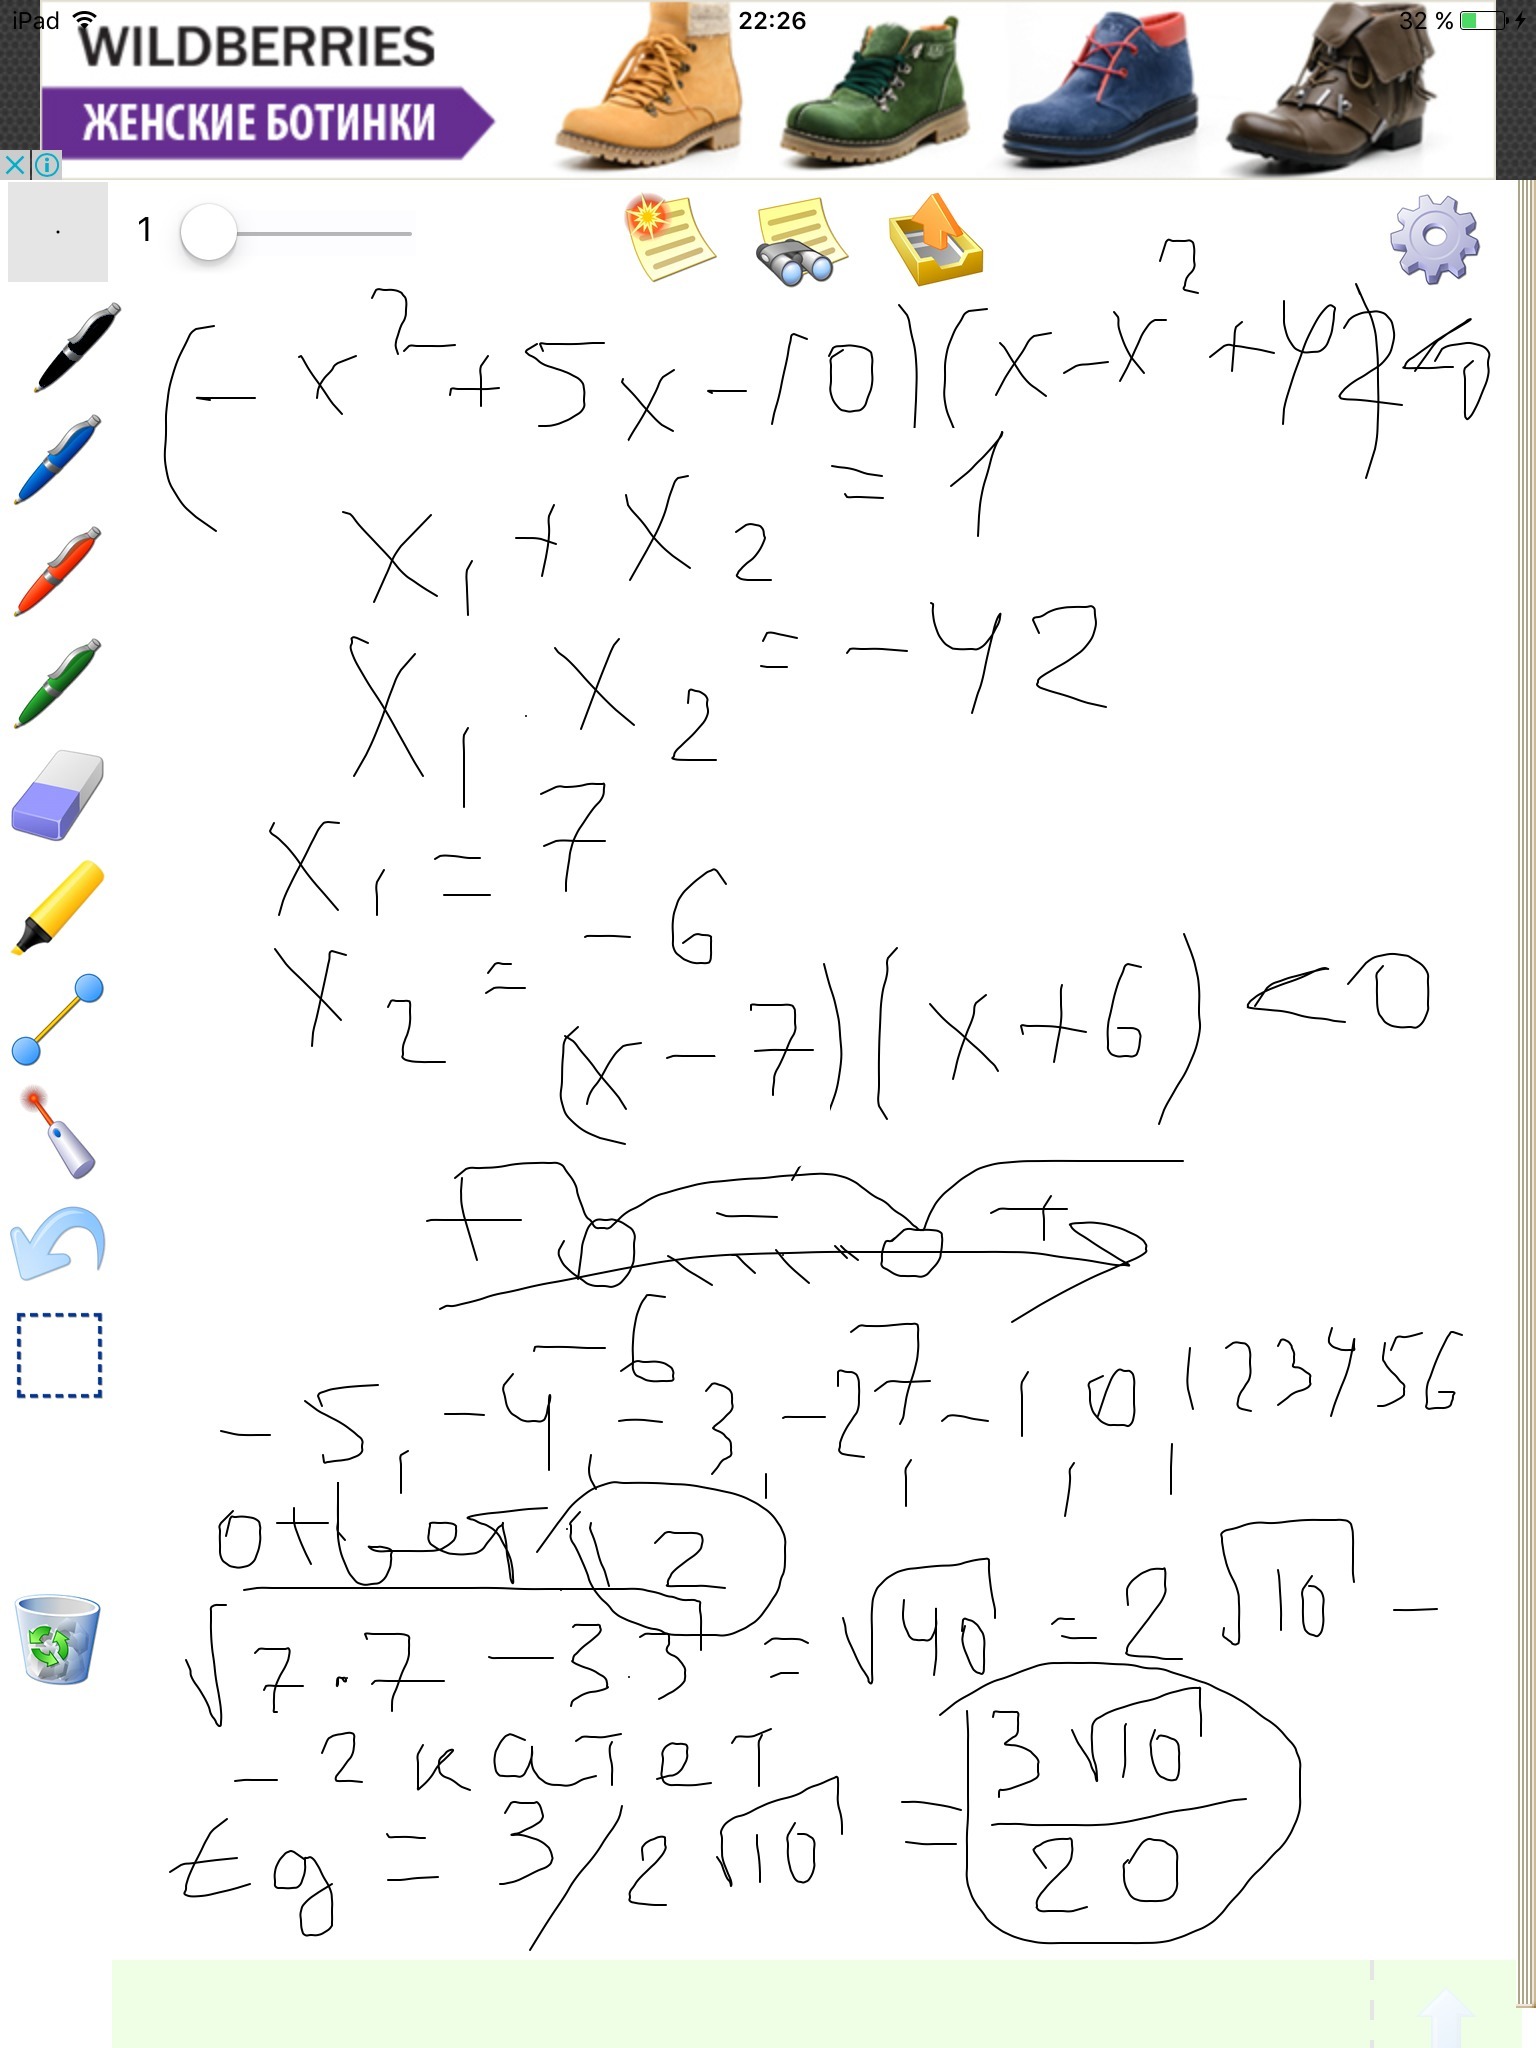 iPad 22:26 32 %
WILDBERRIES
ЖЕНСКИЕ БОТИНКИ
1
(- x² + 5x - 10)(x - x² + 42) < 0
x₁ + x₂ = 1
x₁ · x₂ = - 42
x₁ = 7
x₂ = - 6
(x - 7)(x + 6) < 0
+ - +
- 6 7
- 5, - 4, - 3, - 2, - 1, 0, 1 2 3 4 5 6
ответ 12
√7·7 - 3·3 = √40 = 2√10 -
- 2 катет
tg = 3/2√10 = 3√10/20